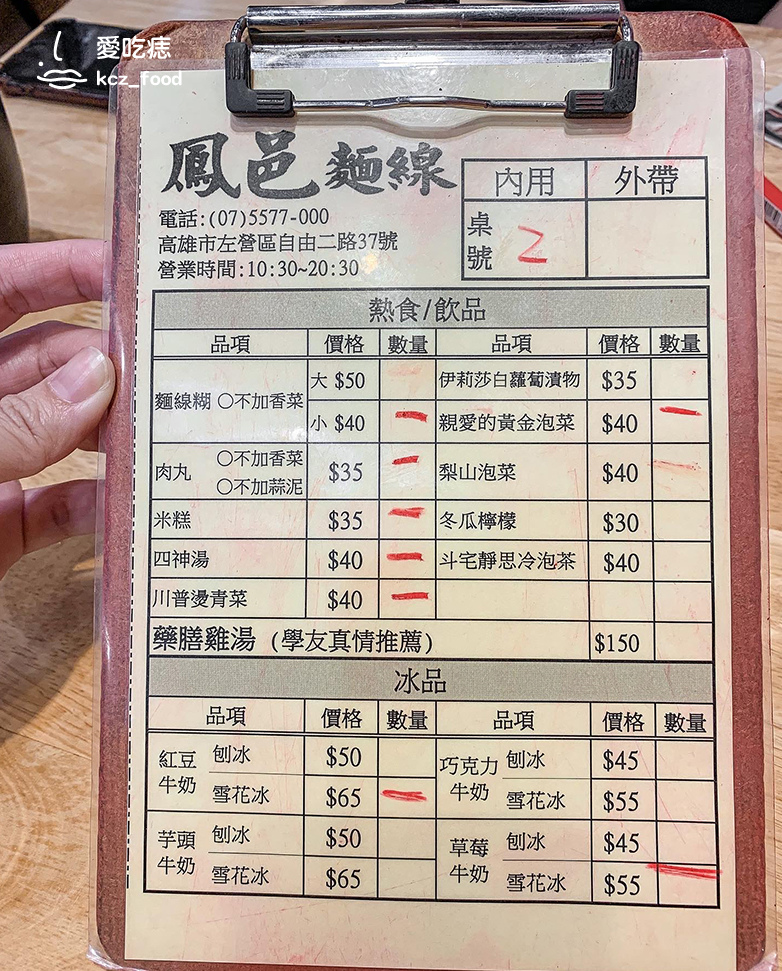 愛吃痣
kcz_food
鳳邑麵線
電話:(07)5577-000
高雄市左營區自由二路37號
營業時間:10:30~20:30
內用 外帶
桌號 2
熱食/飲品
品項 價格 數量 品項 價格 數量
麵線糊 ○不加香菜 大 $50 伊莉莎白蘿蔔漬物 $35
小 $40 親愛的黃金泡菜 $40
肉丸 ○不加香菜 ○不加蒜泥 $35 梨山泡菜 $40
米糕 $35 冬瓜檸檬 $30
四神湯 $40 斗宅靜思冷泡茶 $40
川普燙青菜 $40
藥膳雞湯 (學友真情推薦) $150
冰品
品項 價格 數量 品項 價格 數量
紅豆牛奶 刨冰 $50 巧克力牛奶 刨冰 $45
雪花冰 $65 雪花冰 $55
芋頭牛奶 刨冰 $50 草莓牛奶 刨冰 $45
雪花冰 $65 雪花冰 $55